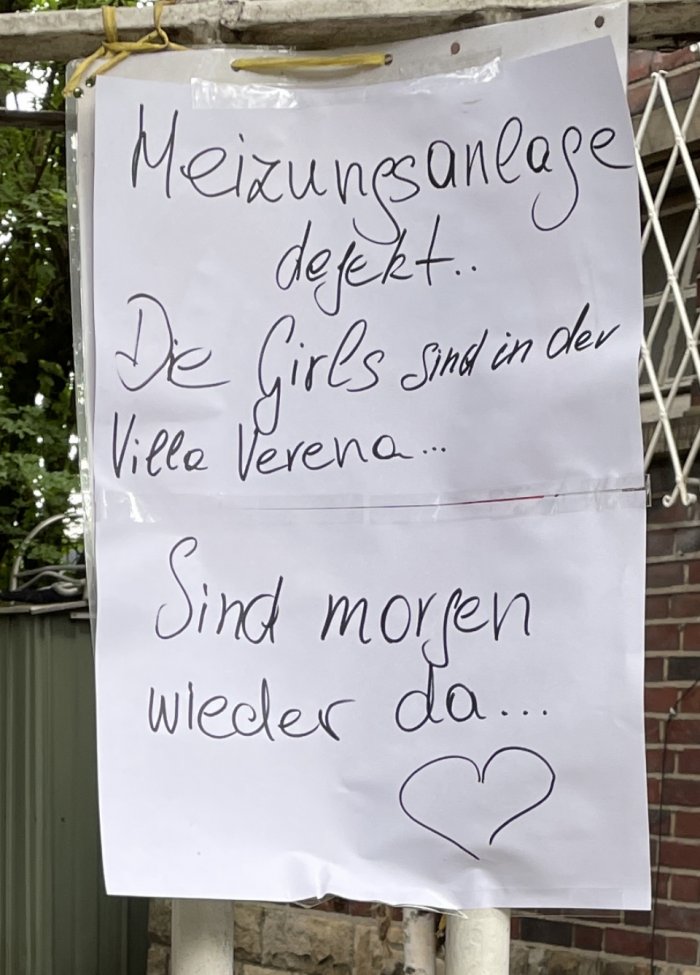 Heizungsanlage
defekt..
Die Girls sind in der
Villa Verena...
Sind morgen
wieder da...